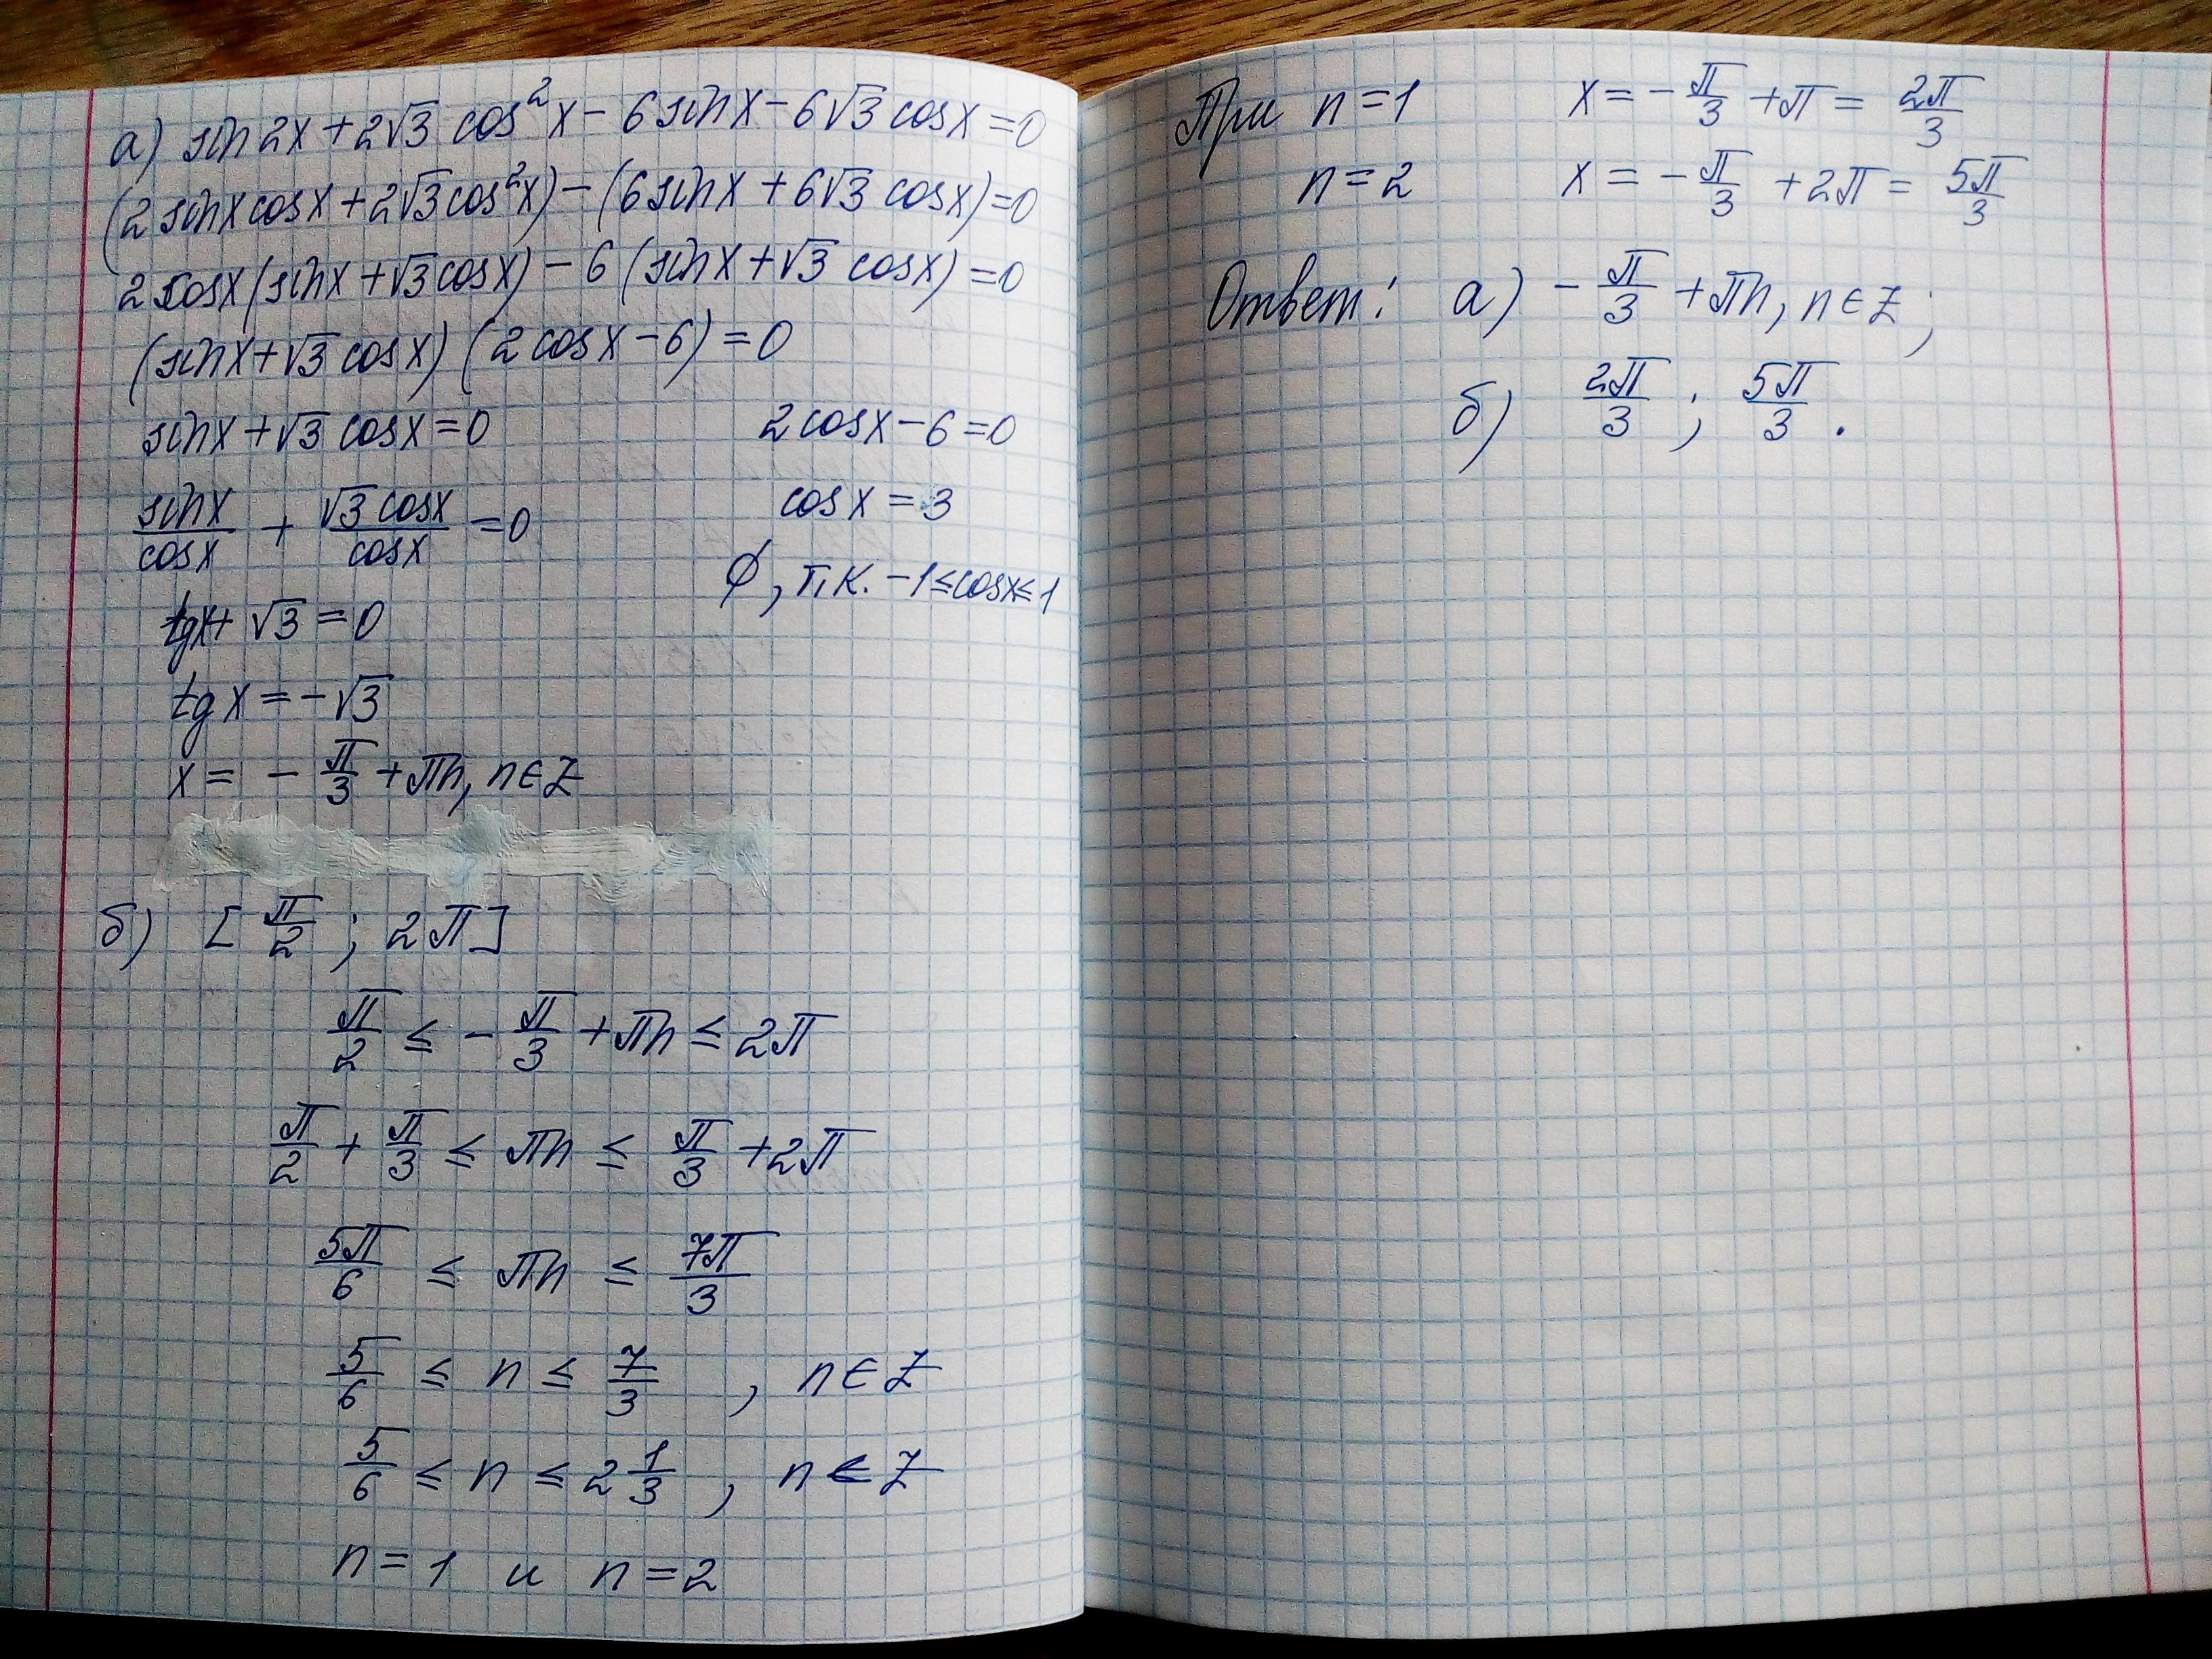 а) sin2x + 2√3 cos²x − 6sinx − 6√3 cosx = 0
(2sinxcosx + 2√3cos²x) − (6sinx + 6√3 cosx) = 0
2cosx(sinx + √3cosx) − 6(sinx + √3 cosx) = 0
(sinx + √3 cosx)(2cosx − 6) = 0
sinx + √3 cosx = 0 2cosx − 6 = 0
sinx/cosx + √3 cosx/cosx = 0 cosx = 3
∅, т.к. −1 ≤ cosx ≤ 1
tgx + √3 = 0
tgx = −√3
x = −π/3 + πn, n∈Z
б) [π/2 ; 2π]
π/2 ≤ −π/3 + πn ≤ 2π
π/2 + π/3 ≤ πn ≤ π/3 + 2π
5π/6 ≤ πn ≤ 7π/3
5/6 ≤ n ≤ 7/3 , n∈Z
5/6 ≤ n ≤ 2 1/3 , n∈Z
n = 1 и n = 2
При n = 1 x = −π/3 + π = 2π/3
n = 2 x = −π/3 + 2π = 5π/3
Ответ: а) −π/3 + πn, n∈Z;
б) 2π/3 ; 5π/3 .